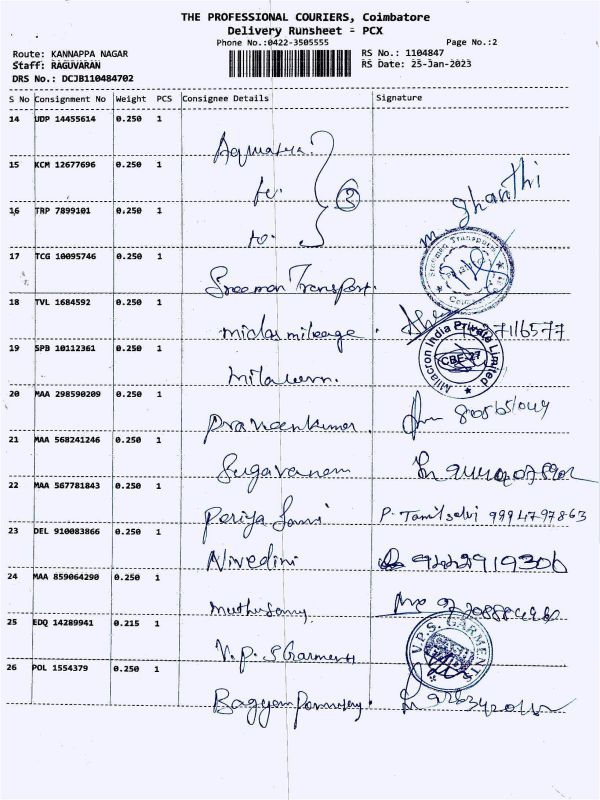 THE PROFESSIONAL COURIERS, Coimbatore
Delivery Runsheet - PCX
Phone No.:0422-3505555 Page No.:2
Route: KANNAPPA NAGAR RS No.: 1104847
Staff: RAGUVARAN RS Date: 25-Jan-2023
DRS No.: DCJB110484702
S No Consignment No Weight PCS Consignee Details Signature
14 UDP 14455614 0.250 1
15 KCM 12677696 0.250 1 3
16 TRP 7899101 0.250 1 to. M. Shanthi
17 TCG 10095746 0.250 1 Sreeman Transport.
18 TVL 1684592 0.250 1 midas mileage
19 SPB 10112361 0.250 1 Milacron India Private Limited CBE-27
20 MAA 298590209 0.250 1 Praveenkumar
21 MAA 568241246 0.250 1 Sugavanam
22 MAA 567781843 0.250 1 Periya Sami P. Tamilselvi 9994797863
23 DEL 910083866 0.250 1 Nivedini
24 MAA 859064290 0.250 1 Muthusamy
25 EDQ 14289941 0.215 1 V.P.S Garments V.P.S. GARMENTS
26 POL 1554379 0.250 1